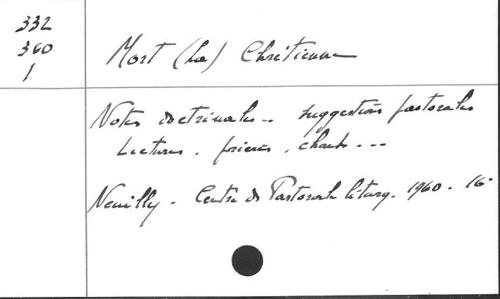 332
360
1
Mort (La) Chrétienne
Notes doctrinales - suggestions pastorales
Lectures, prières, chants...
Neuilly. Centre de Pastorale liturg. 1960. 16°